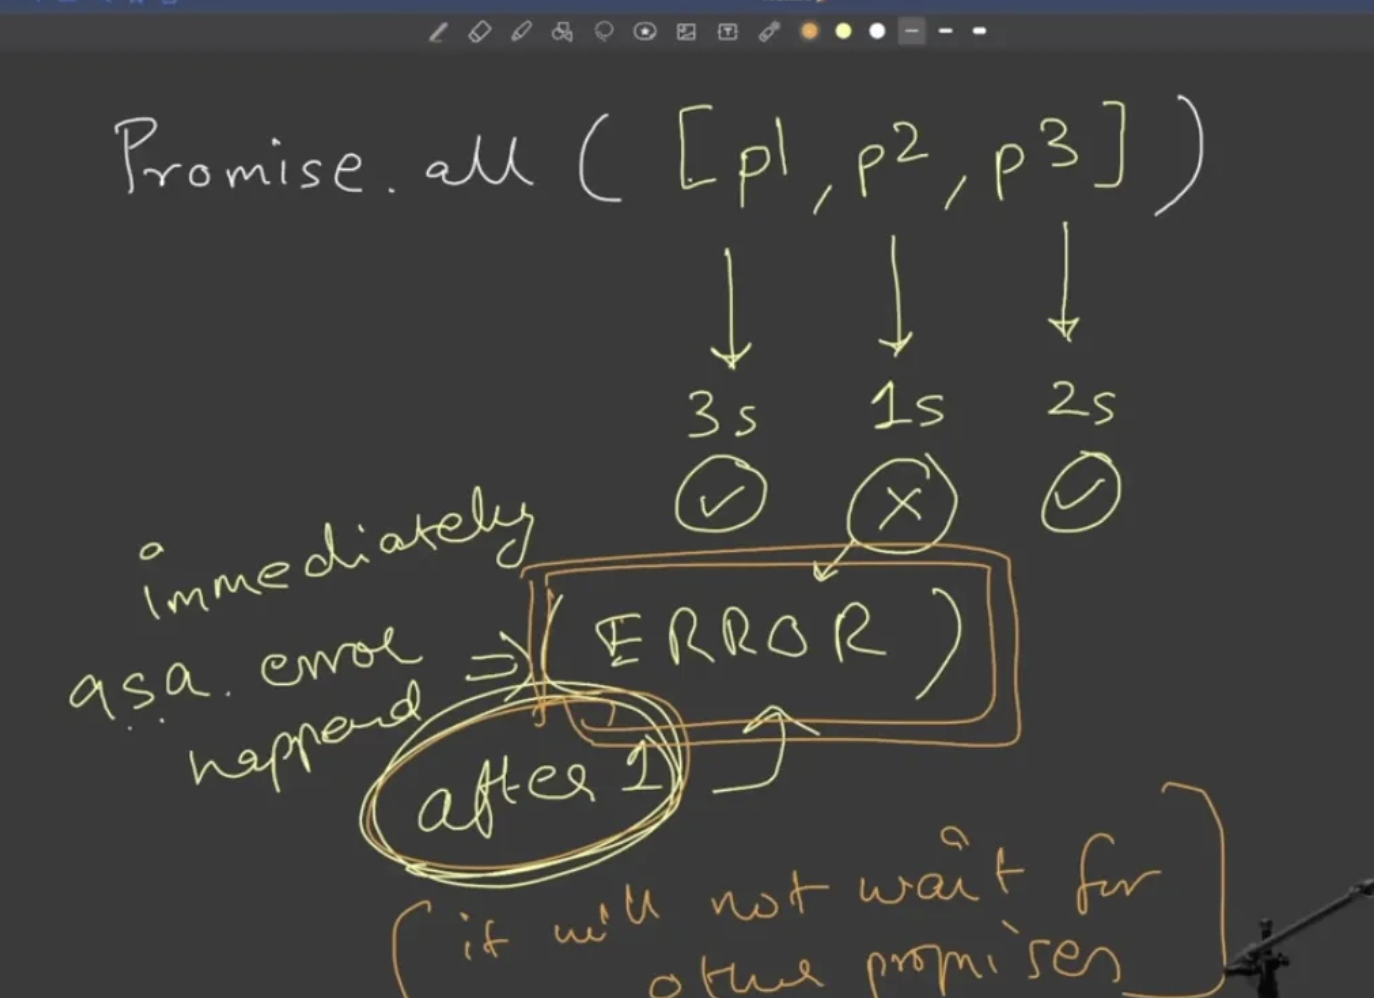 Promise.all ( [p1, p2, p3] )
3s 1s 2s
immediately
( ERROR )
asa. error
happend
after 1
it will not wait for
other promises